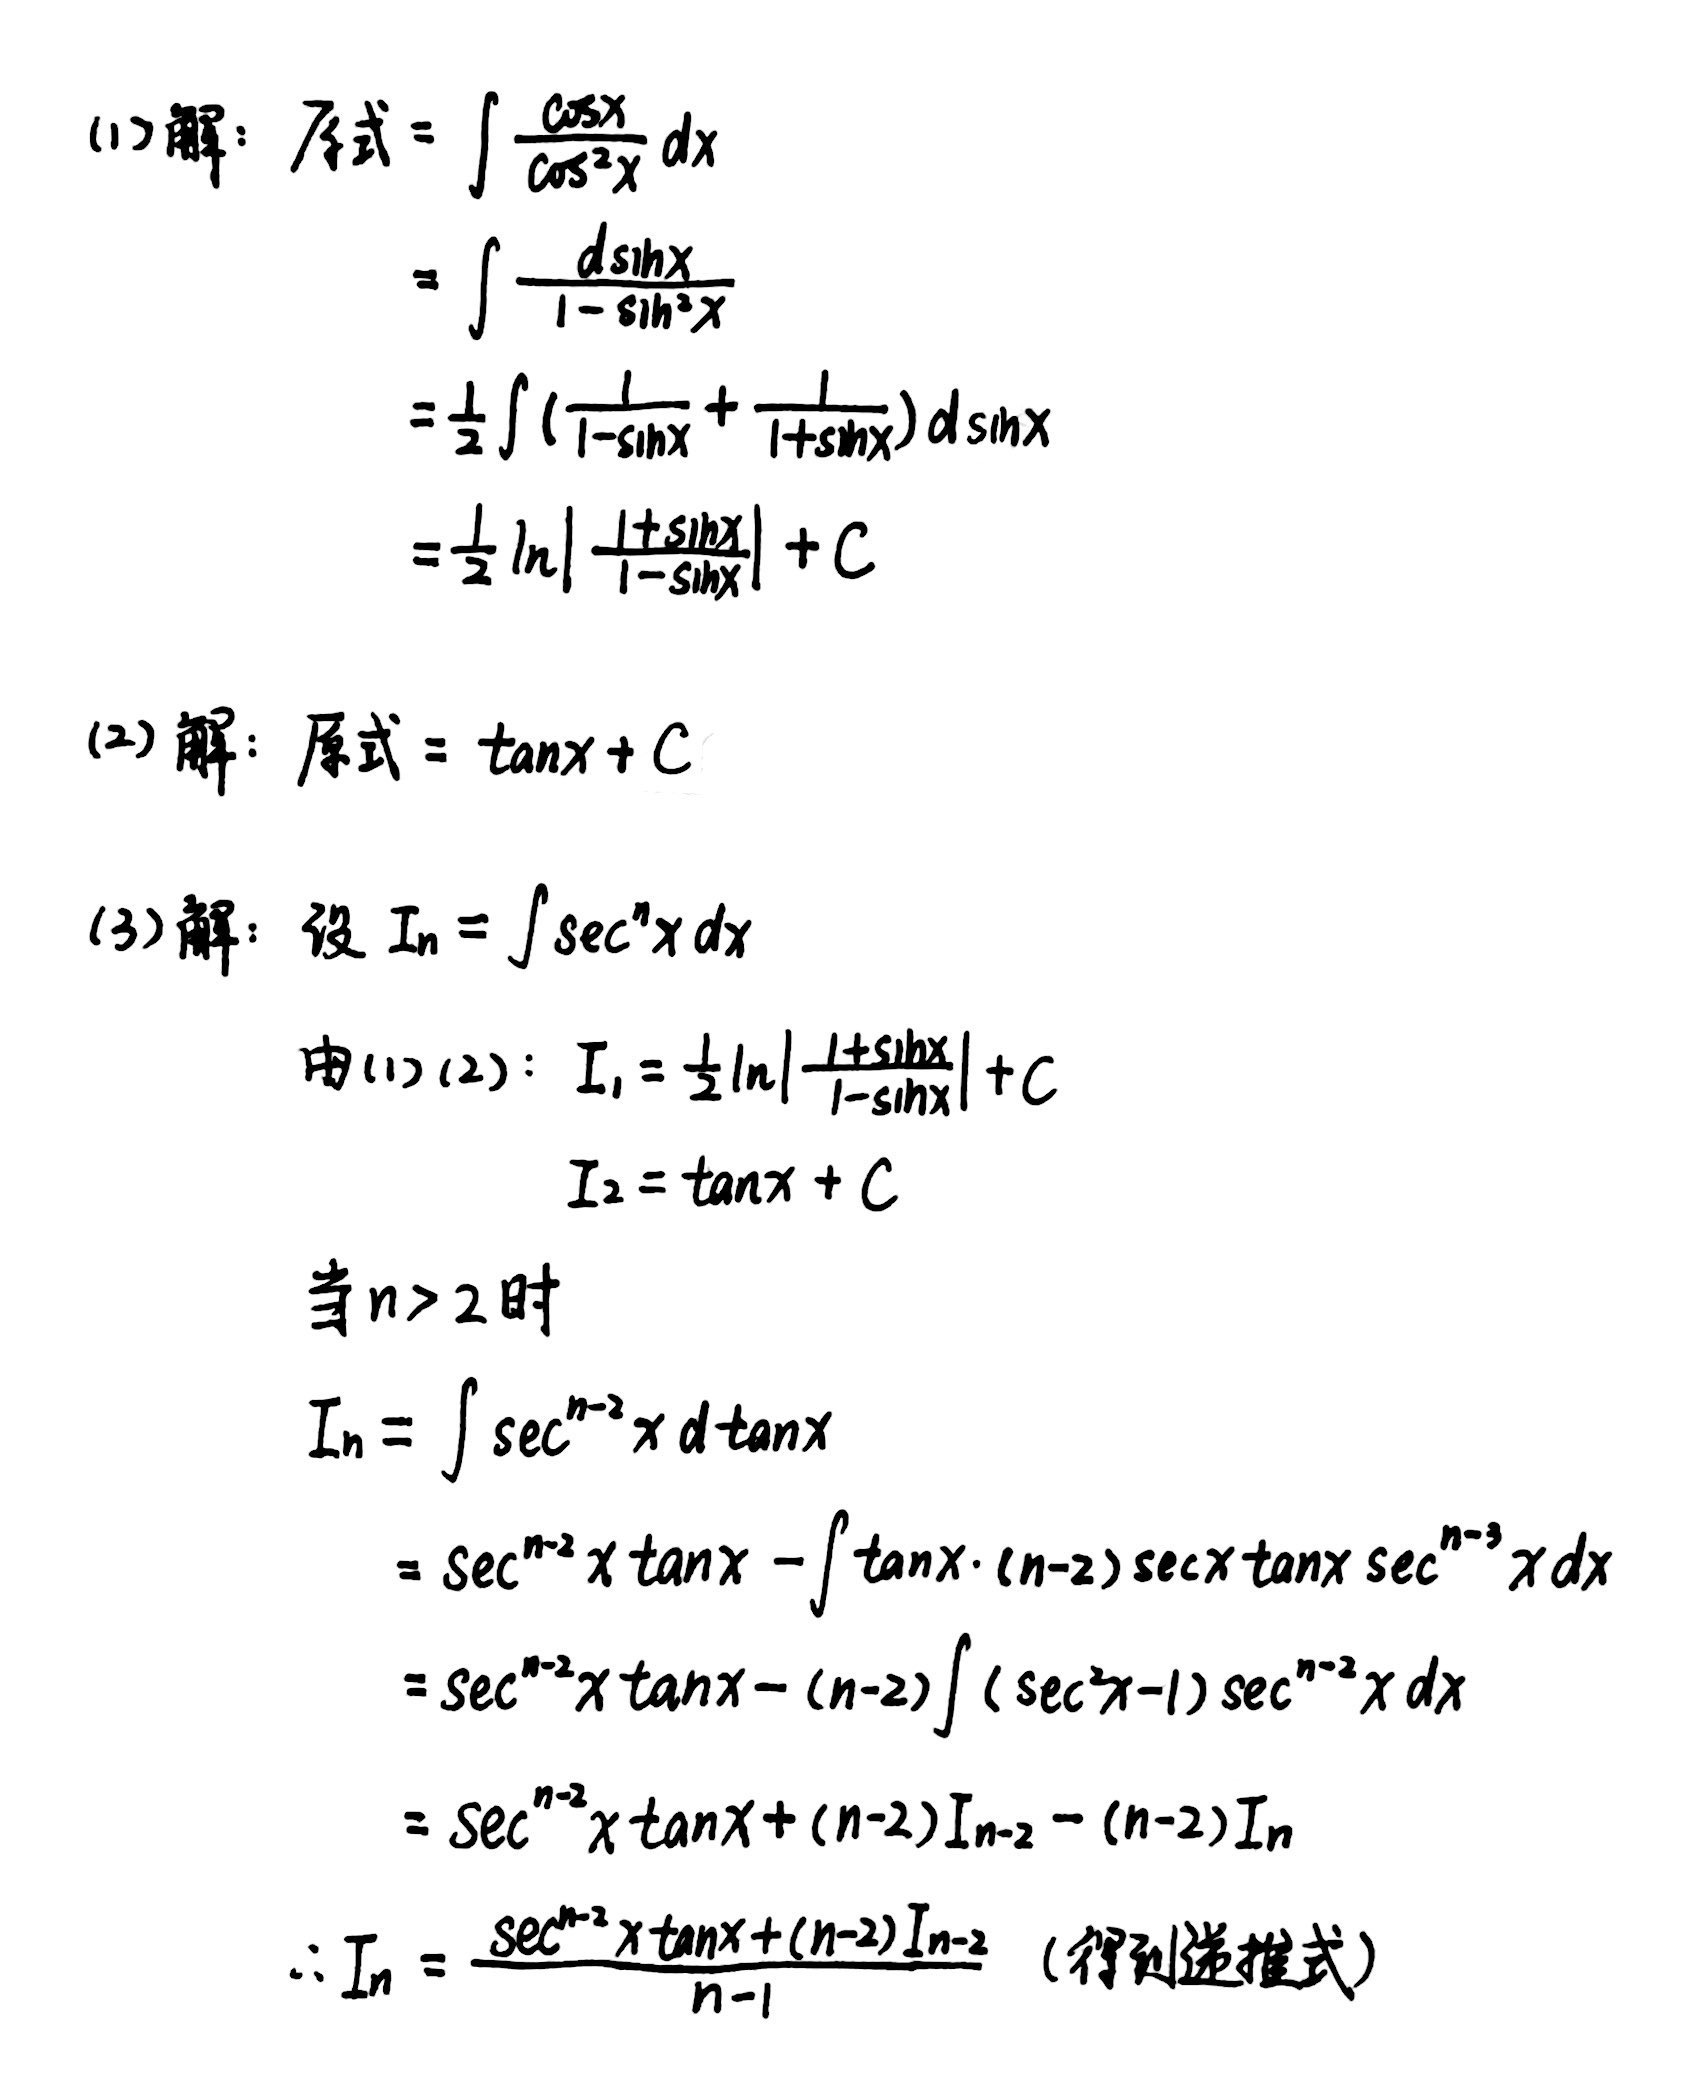 (1)解: 原式 = ∫ cosx/cos²x dx
= ∫ dsinx/(1-sin²x)
= 1/2 ∫ (1/(1-sinx) + 1/(1+sinx)) dsinx
= 1/2 ln|(1+sinx)/(1-sinx)| + C
(2)解: 原式 = tanx + C
(3)解: 设 Iₙ = ∫ secⁿx dx
由(1)(2): I₁ = 1/2 ln|(1+sinx)/(1-sinx)| + C
I₂ = tanx + C
当 n > 2 时
Iₙ = ∫ secⁿ⁻²x d tanx
= secⁿ⁻²x tanx - ∫ tanx·(n-2) secx tanx secⁿ⁻³x dx
= secⁿ⁻²x tanx - (n-2) ∫ (sec²x-1) secⁿ⁻²x dx
= secⁿ⁻²x tanx + (n-2)Iₙ₋₂ - (n-2)Iₙ
∴ Iₙ = (secⁿ⁻²x tanx + (n-2)Iₙ₋₂)/(n-1) (得到递推式)